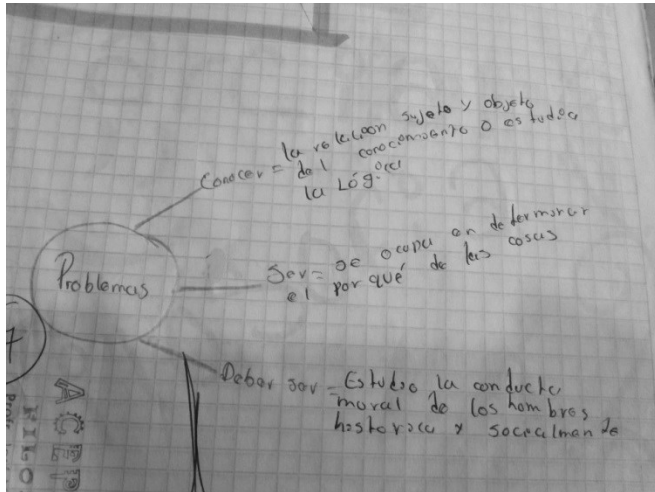 Conocer = la relacion sujeto y objeto
del conocimiento o estudia
la Lógica
Problemas
Ser = se ocupa en determinar
el por qué de las cosas
Deber ser = Estudia la conducta
moral de los hombres
historica y socialmente
7
ACEP
FILO